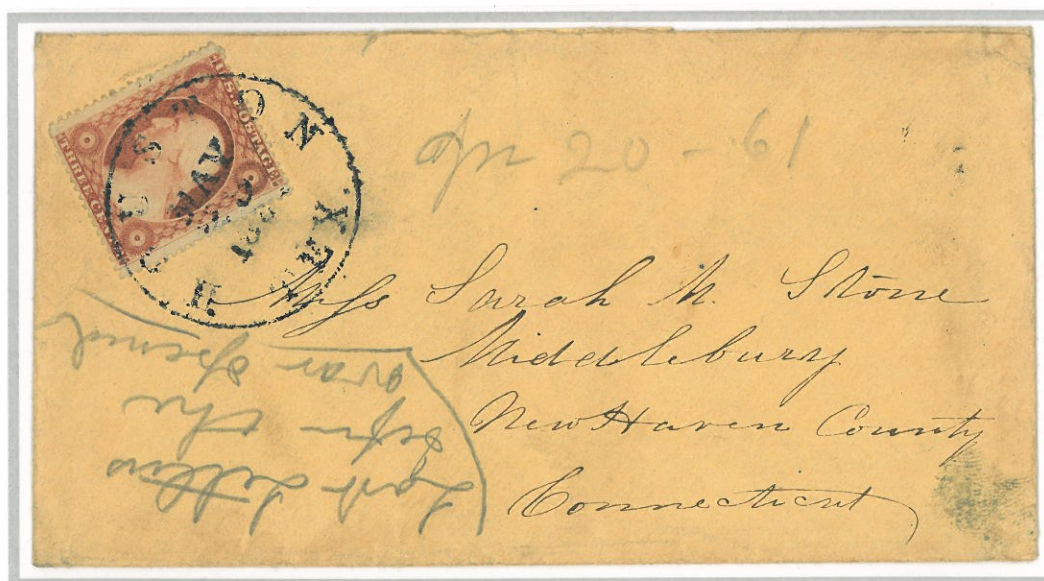 U.S. POSTAGE
THREE CENTS
HOUSTON TEX.
MAY
Apr 20 - 61
Miss Sarah M. Stone
Middlebury
New Haven County
Connecticut
Last Letter
before the
war opened